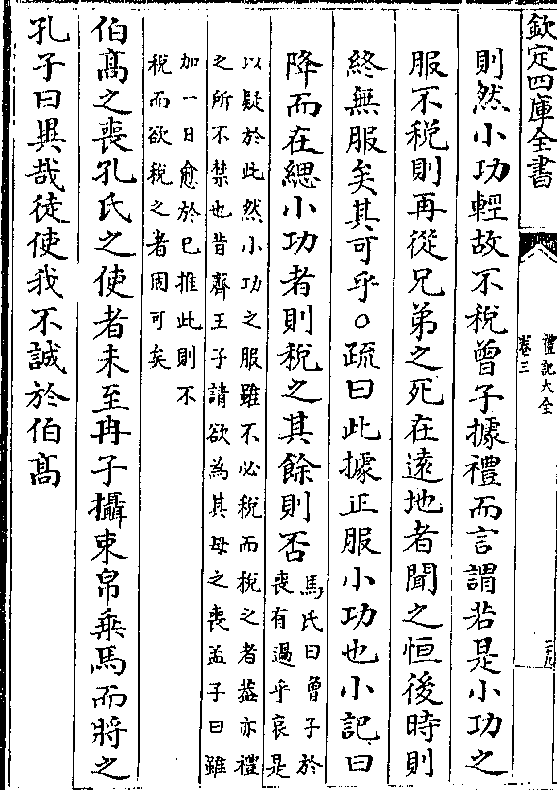 欽定四庫全書
禮記大全
卷三
則然小功輕故不稅曾子據禮而言謂若是小功之
服不稅則再從兄弟之死在逺地者聞之恒後時則
終無服矣其可乎○疏曰此據正服小功也小記曰
降而在緦小功者則稅之其餘則否
馬氏曰曾子於
喪有過乎哀是
以疑於此然小功之服雖不必稅而稅之者葢亦禮
之所不禁也昔齊王子請欲為其母之喪孟子曰雖
加一日愈於已推此則不
稅而欲稅之者固可矣
伯髙之喪孔氏之使者未至冉子攝束帛乗馬而將之
孔子曰異哉徒使我不誠於伯髙